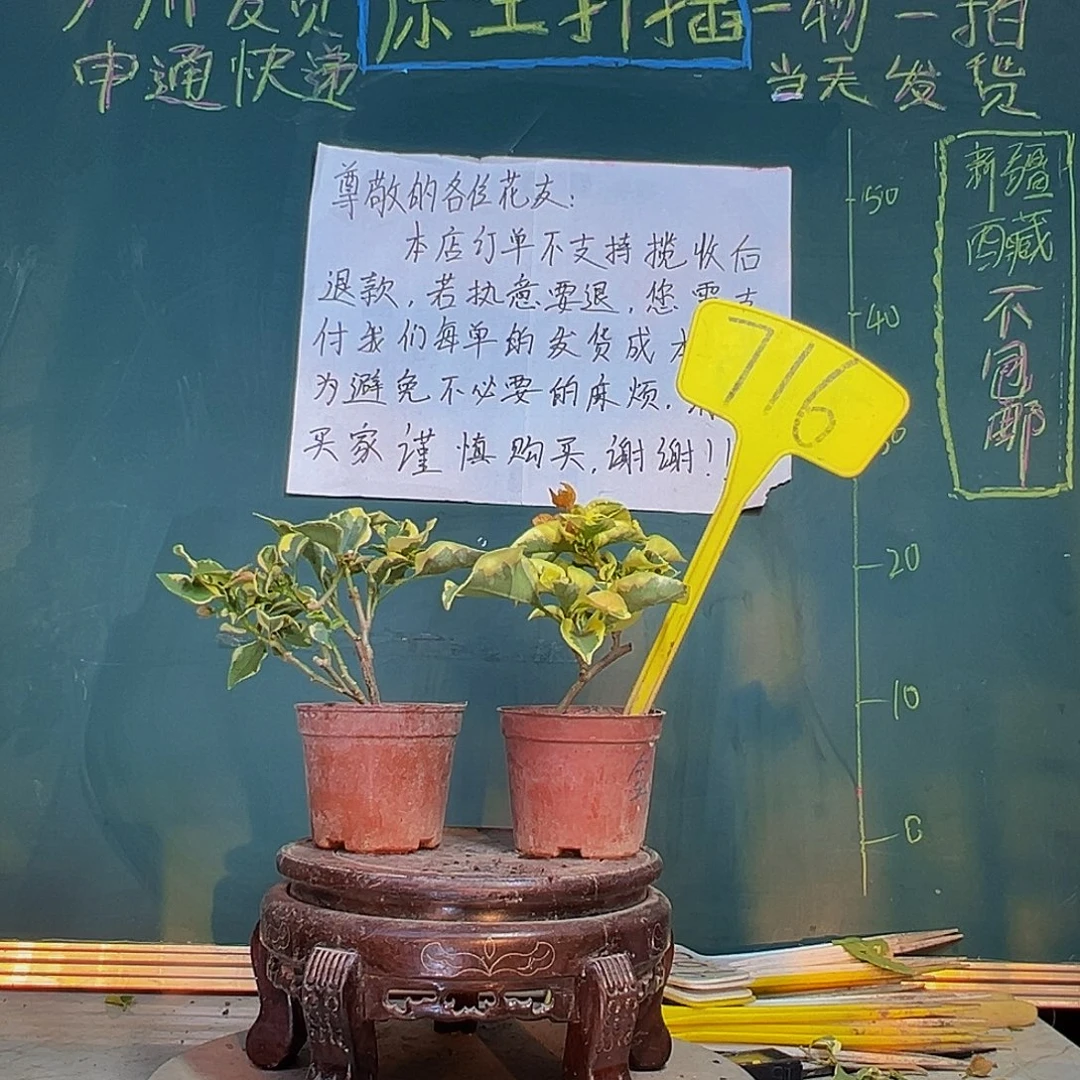 广州发货 原土扦插 一物一拍
申通快递
当天发货
尊敬的各位花友:
本店订单不支持揽收后
退款,若执意要退,您需支
付我们每单的发货成本
为避免不必要的麻烦,
买家谨慎购买,谢谢!!
716
新疆
西藏
不包邮
50
40
20
10
0